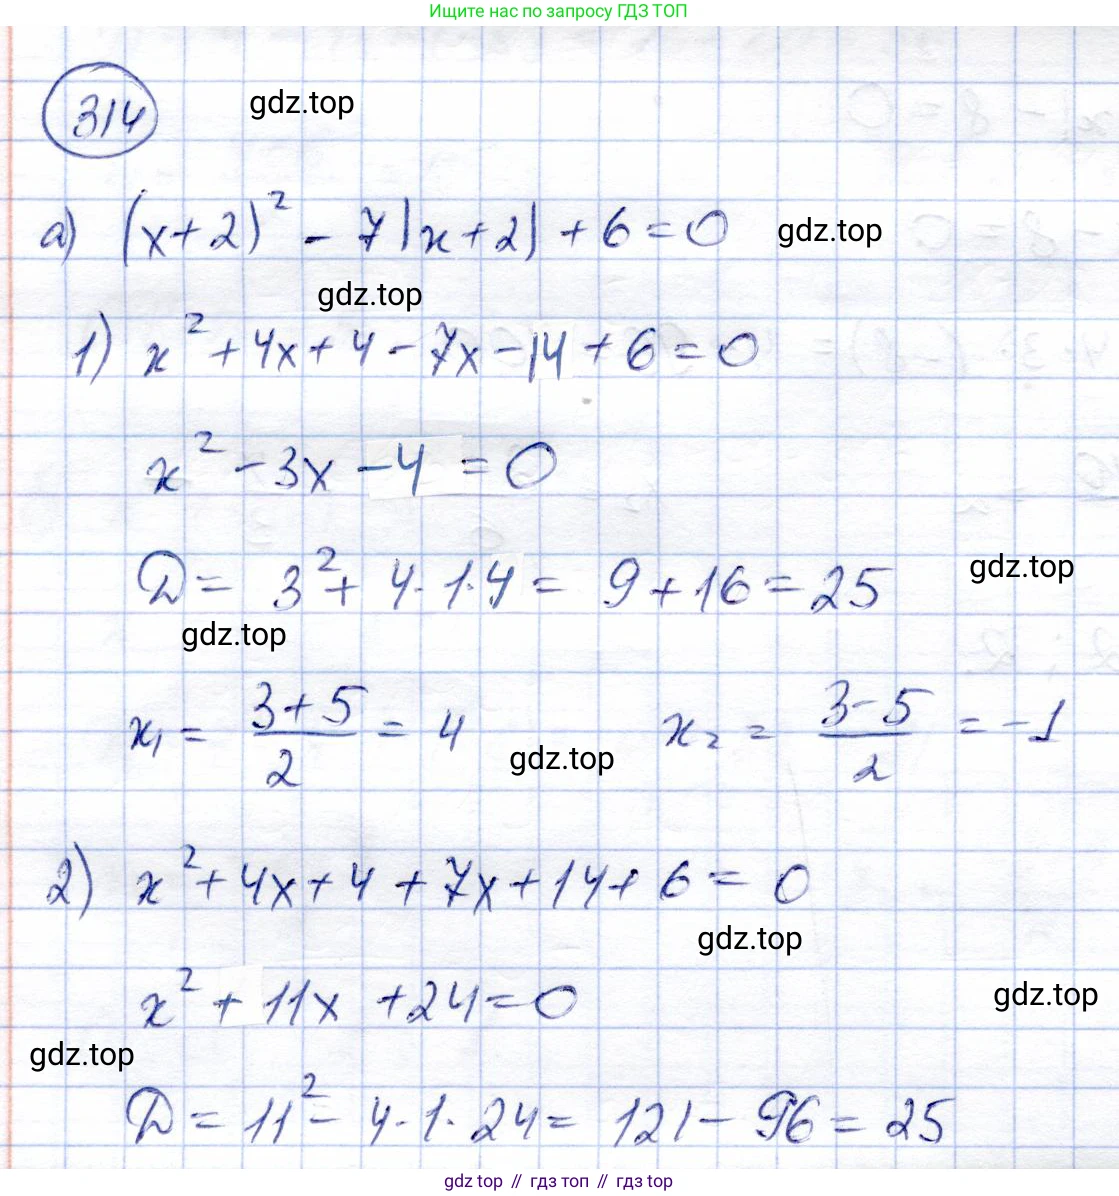 Ищите нас по запросу ГДЗ ТОП
314
gdz.top
а) (x+2)² - 7|x+2| + 6 = 0
gdz.top
gdz.top
1) x² + 4x + 4 - 7x - 14 + 6 = 0
x² - 3x - 4 = 0
D = 3² + 4·1·4 = 9 + 16 = 25
gdz.top
gdz.top
x₁ = (3+5)/2 = 4   x₂ = (3-5)/2 = -1
gdz.top
2) x² + 4x + 4 + 7x + 14 + 6 = 0
gdz.top
x² + 11x + 24 = 0
gdz.top
gdz.top
D = 11² - 4·1·24 = 121 - 96 = 25
gdz top // гдз топ // gdz top